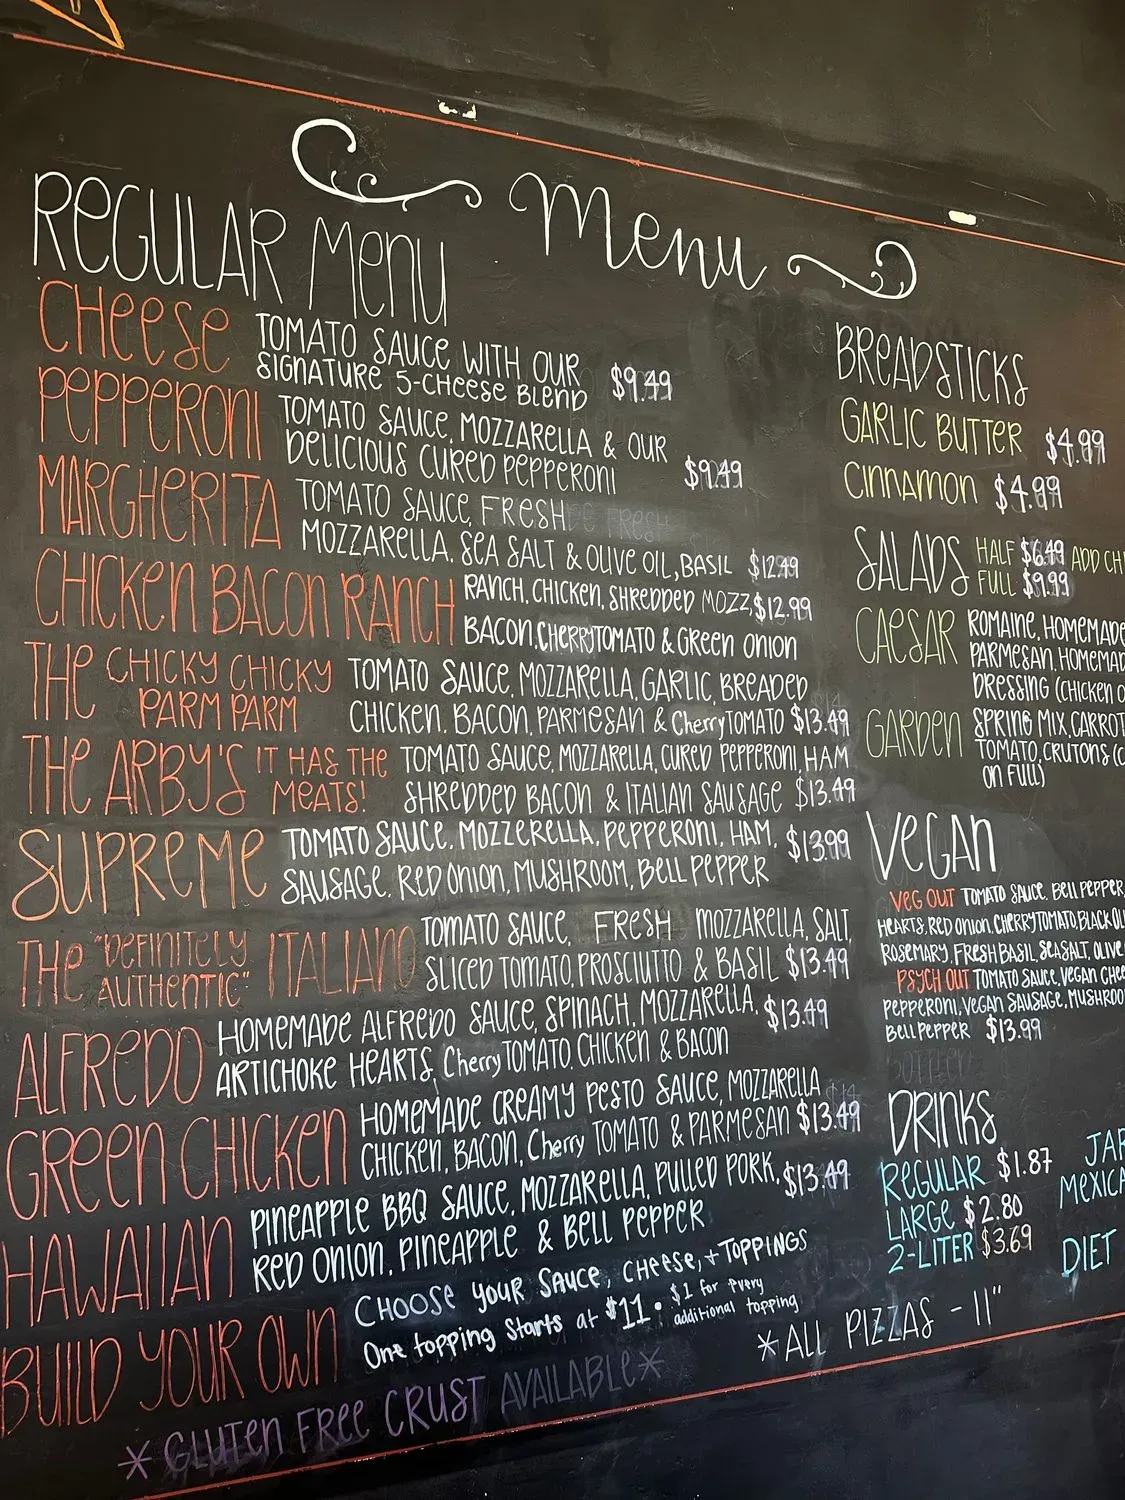 Menu
REGULAR MENU
CHEESE
TOMATO SAUCE WITH OUR
SIGNATURE 5-CHEESE BLEND
$9.49
PEPPERONI
TOMATO SAUCE, MOZZARELLA & OUR
DELICIOUS CURED PEPPERONI
$9.49
MARGHERITA
TOMATO SAUCE, FRESH
MOZZARELLA, SEA SALT & OLIVE OIL, BASIL $12.49
CHICKEN BACON RANCH
RANCH, CHICKEN, SHREDDED MOZZ, $12.99
BACON, CHERRY TOMATO & GREEN ONION
THE CHICKY CHICKY
PARM PARM
TOMATO SAUCE, MOZZARELLA, GARLIC, BREADED
CHICKEN, BACON, PARMESAN & Cherry TOMATO $13.49
THE ARBY'S IT HAS THE
MEATS!
TOMATO SAUCE, MOZZARELLA, CURED PEPPERONI, HAM
SHREDDED BACON & ITALIAN SAUSAGE $13.49
SUPREME
TOMATO SAUCE, MOZZERELLA, PEPPERONI, HAM, $13.99
SAUSAGE, RED ONION, MUSHROOM, BELL PEPPER
THE "DEFINITELY
AUTHENTIC" ITALIANO
TOMATO SAUCE, FRESH MOZZARELLA, SALT,
SLICED TOMATO, PROSCIUTTO & BASIL $13.49
ALFREDO
HOMEMADE ALFREDO SAUCE, SPINACH, MOZZARELLA, $13.49
ARTICHOKE HEARTS, Cherry TOMATO, CHICKEN & BACON
GREEN CHICKEN
HOMEMADE CREAMY PESTO SAUCE, MOZZARELLA
CHICKEN, BACON, Cherry TOMATO & PARMESAN $13.49
HAWAIIAN
PINEAPPLE BBQ SAUCE, MOZZARELLA, PULLED PORK, $13.49
RED ONION, PINEAPPLE & BELL PEPPER
BUILD YOUR OWN
CHOOSE YOUR SAUCE, CHEESE, + TOPPINGS
One topping starts at $11 • $1 for every
additional topping
*GLUTEN FREE CRUST AVAILABLE*
BREADSTICKS
GARLIC BUTTER $4.99
CINNAMON $4.99
SALADS
HALF $6.49 ADD CH
FULL $9.99
CAESAR
ROMAINE, HOMEMADE
PARMESAN, HOMEMAD
DRESSING (CHICKEN O
GARDEN
SPRING MIX, CARROT
TOMATO, CRUTONS (C
ON FULL)
VEGAN
VEG OUT TOMATO SAUCE, BELL PEPPER,
HEARTS, RED ONION, CHERRY TOMATO, BLACK OL
ROSEMARY, FRESH BASIL, SEASALT, OLIVE
PSYCH OUT TOMATO SAUCE, VEGAN CHEE
PEPPERONI, VEGAN SAUSAGE, MUSHROO
BELL PEPPER $13.99
DRINKS
REGULAR $1.87
LARGE $2.80
2-LITER $3.69
JAR
MEXICA
DIET
*ALL PIZZAS - 11"